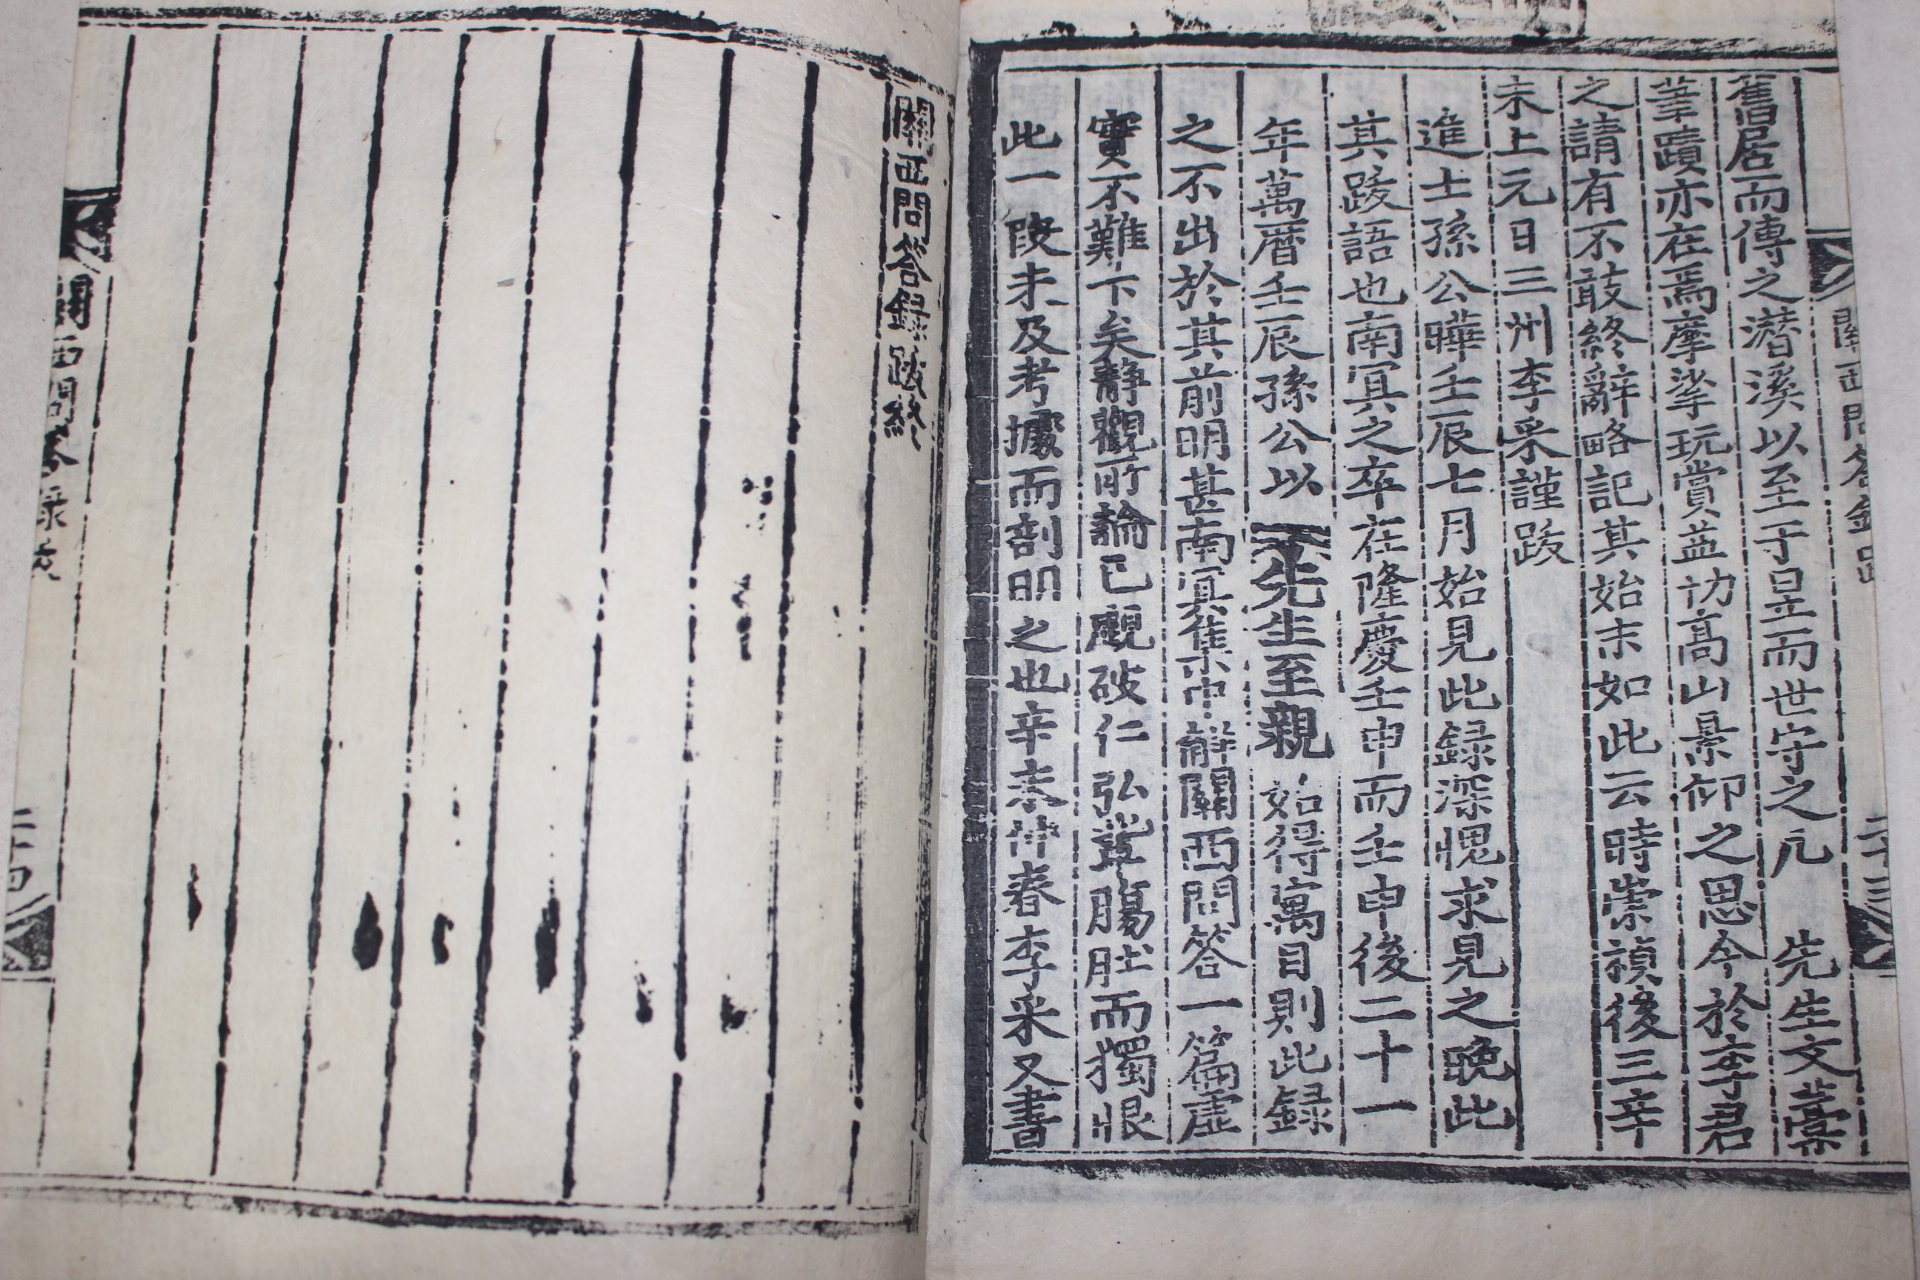 舊居而傳之潛溪以至于是而世守之凡 先生文藁
筆蹟亦在焉摩挲玩賞益切高山景仰之思今於李君
之請有不敢終辭略記其始末如此云時崇禎後三辛
未上元日三州李采謹跋
進士孫公曄壬辰七月始見此錄深愧求見之晩此
其跋語也南冥之卒在隆慶壬申而壬申後二十一
年萬曆壬辰孫公以 先生至親 始得寓目則此錄
之不出於其前明甚南冥集中解關西問答一篇虛
實不難下矣靜觀所論已覰破仁弘 腸肚而獨恨
此一段未及考據而剖明之也辛未仲春李采又書
關西問答錄跋
二十三
關西問答錄跋終
關西問答錄跋
二十四